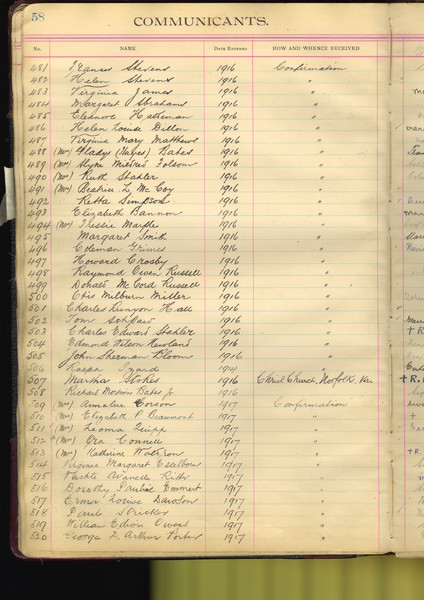 58
COMMUNICANTS.
No. NAME DATE ENTERED HOW AND WHENCE RECEIVED
481 Frances Stevens 1916 Confirmation
482 Helen Stevens 1916 "
483 Virginia James 1916 "
484 Margaret Abrahams 1916 "
485 Eleanor 1916 "
486 Helen Louise Dillon 1916 "
487 Virginia Mary Matthews 1916 "
488 (Mrs) Gladys (Hayes) Bates 1916 "
489 (Mrs) Mildred Folsom 1916 "
490 (Mrs) Ruth Stahler 1916 "
491 (Mrs) Beatrice L. McCoy 1916 "
492 Retta Simpson 1916 "
493 Elizabeth Bannon 1916 "
494 (Mrs) Marple 1916 "
495 Margaret Smith 1916 "
496 Coleman Grimes 1916 "
497 Howard Crosby 1916 "
498 Raymond Owen Russell 1916 "
499 Donald McCord Russell 1916 "
500 Otis Milburn Miller 1916 "
501 Charles Runyon Hall 1916 "
502 Tom 1916 "
503 Charles Edward Stahler 1916 "
504 Edmond Wilson 1916 "
505 John Sherman Bloom 1916 "
506 1914
507 Martha Stokes 1916 Christ Church, Norfolk, Va
508 Richard Bates Jr 1916
509 (Mrs) Annalee Corson 1917 Confirmation
510 (Mrs) Elizabeth P Beaumont 1917 "
511 (Mrs) Leoma 1917 "
512 (Mrs) Ora Connell 1917 "
513 (Mrs) Katherine 1917 "
514 Virginia Margaret 1917 "
515 1917 "
516 Dorothy Pauline Emmert 1917 "
517 Erma Louise Dawson 1917 "
518 Paul Stricker 1917 "
519 William Edion Owens 1917 "
520 George L. Arthur Porter 1917 "